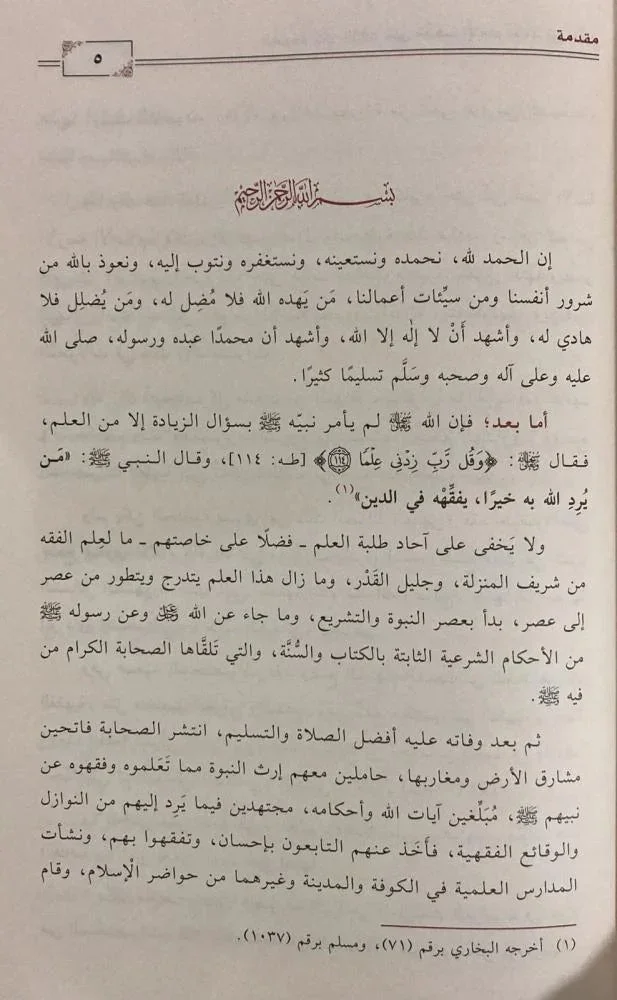 مقدمة
٥
بسم الله الرحمن الرحيم
إن الحمد لله، نحمده ونستعينه، ونستغفره ونتوب إليه، ونعوذ بالله من
شرور أنفسنا ومن سيِّئات أعمالنا، مَن يَهده الله فلا مُضِل له، ومَن يُضلِل فلا
هادي له، وأشهد أَنْ لا إلٰه إلا الله، وأشهد أن محمدًا عبده ورسوله، صلى الله
عليه وعلى آله وصحبه وسَلَّم تسليمًا كثيرًا.
أما بعد؛ فإن الله ﷻ لم يأمر نبيّه ﷺ بسؤال الزيادة إلا من العلم،
فقال ﷻ: ﴿وَقُل رَّبِّ زِدْنِي عِلْمًا ١١٤﴾ [طه: ١١٤]، وقال النبي ﷺ: «مَن
يُرِدِ الله به خيرًا، يفقِّهْه في الدين»(١).
ولا يَخفى على آحاد طلبة العلم ـ فضلًا على خاصتهم ـ ما لعِلم الفقه
من شريف المنزلة، وجليل القَدْر، وما زال هذا العلم يتدرج ويتطور من عصر
إلى عصر، بدأ بعصر النبوة والتشريع، وما جاء عن الله ﷻ وعن رسوله ﷺ
من الأحكام الشرعية الثابتة بالكتاب والسُّنَّة، والتي تَلقَّاها الصحابة الكرام من
فيه ﷺ.
ثم بعد وفاته عليه أفضل الصلاة والتسليم، انتشر الصحابة فاتحين
مشارق الأرض ومغاربها، حاملين معهم إرث النبوة مما تَعَلموه وفقهوه عن
نبيهم ﷺ، مُبَلِّغين آيات الله وأحكامه، مجتهدين فيما يَرِد إليهم من النوازل
والوقائع الفقهية، فأَخَذ عنهم التابعون بإحسان، وتفقهوا بهم، ونشأت
المدارس العلمية في الكوفة والمدينة وغيرهما من حواضر الْإسلام، وقام
(١) أخرجه البخاري برقم (٧١)، ومسلم برقم (١٠٣٧).